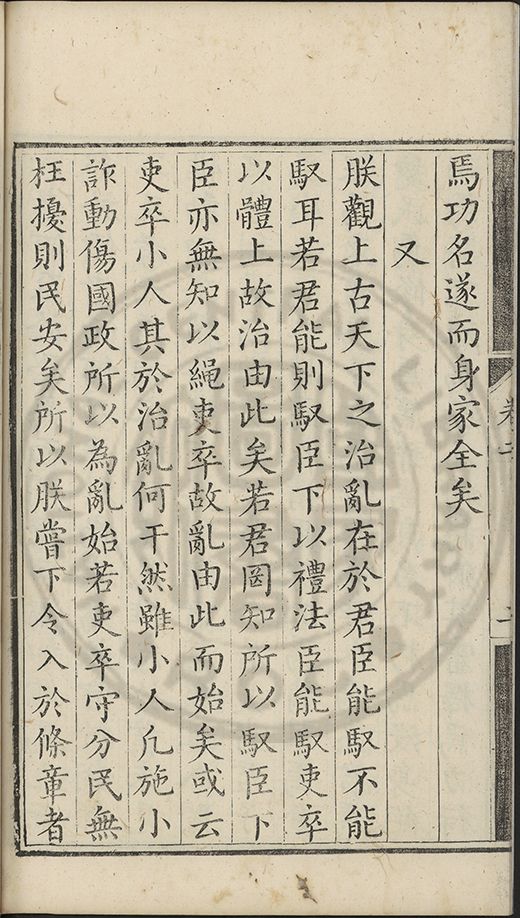 焉功名遂而身家全矣
又
朕觀上古天下之治亂在於君臣能馭不能
馭耳若君能則馭臣下以禮法臣能馭吏卒
以體上故治由此矣若君罔知所以馭臣下
臣亦無知以繩吏卒故亂由此而始矣或云
吏卒小人其於治亂何干然雖小人凡施小
詐動傷國政所以為亂始若吏卒守分民無
枉擾則民安矣所以朕嘗下令入於條章者